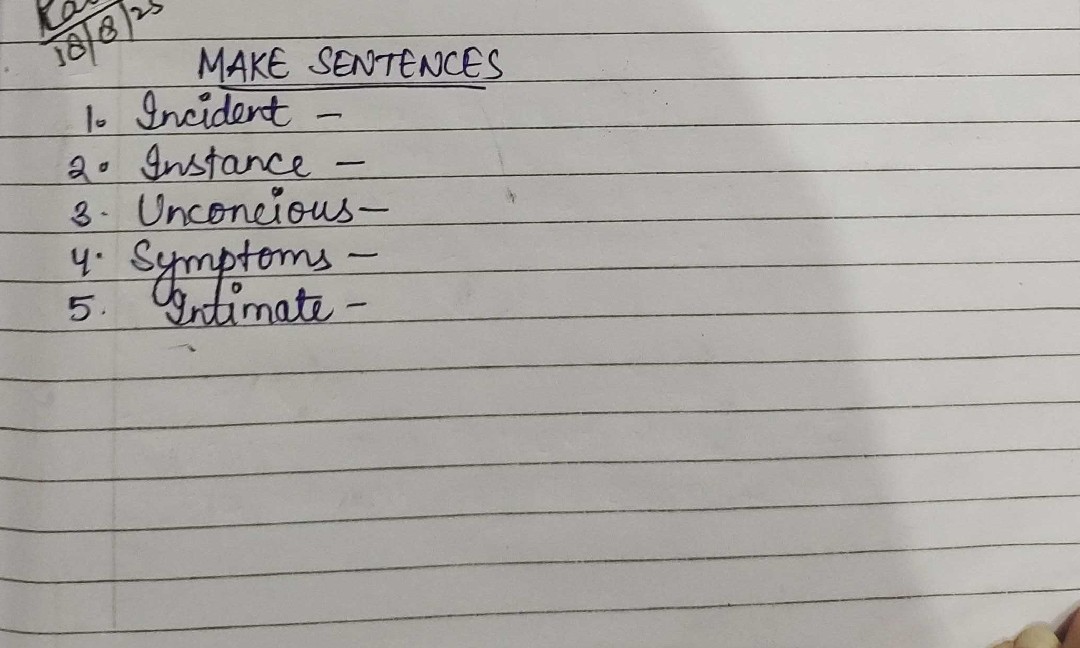 18/8/25
MAKE SENTENCES
1. Incident -
2. Instance -
3. Unconcious -
4. Symptoms -
5. Intimate -